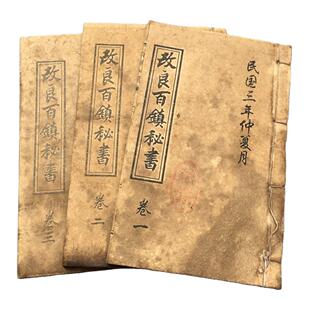 民国三年仲夏月
改良百鎮秘書
卷一
改良百鎮秘書
卷二
改良百鎮秘書
卷三